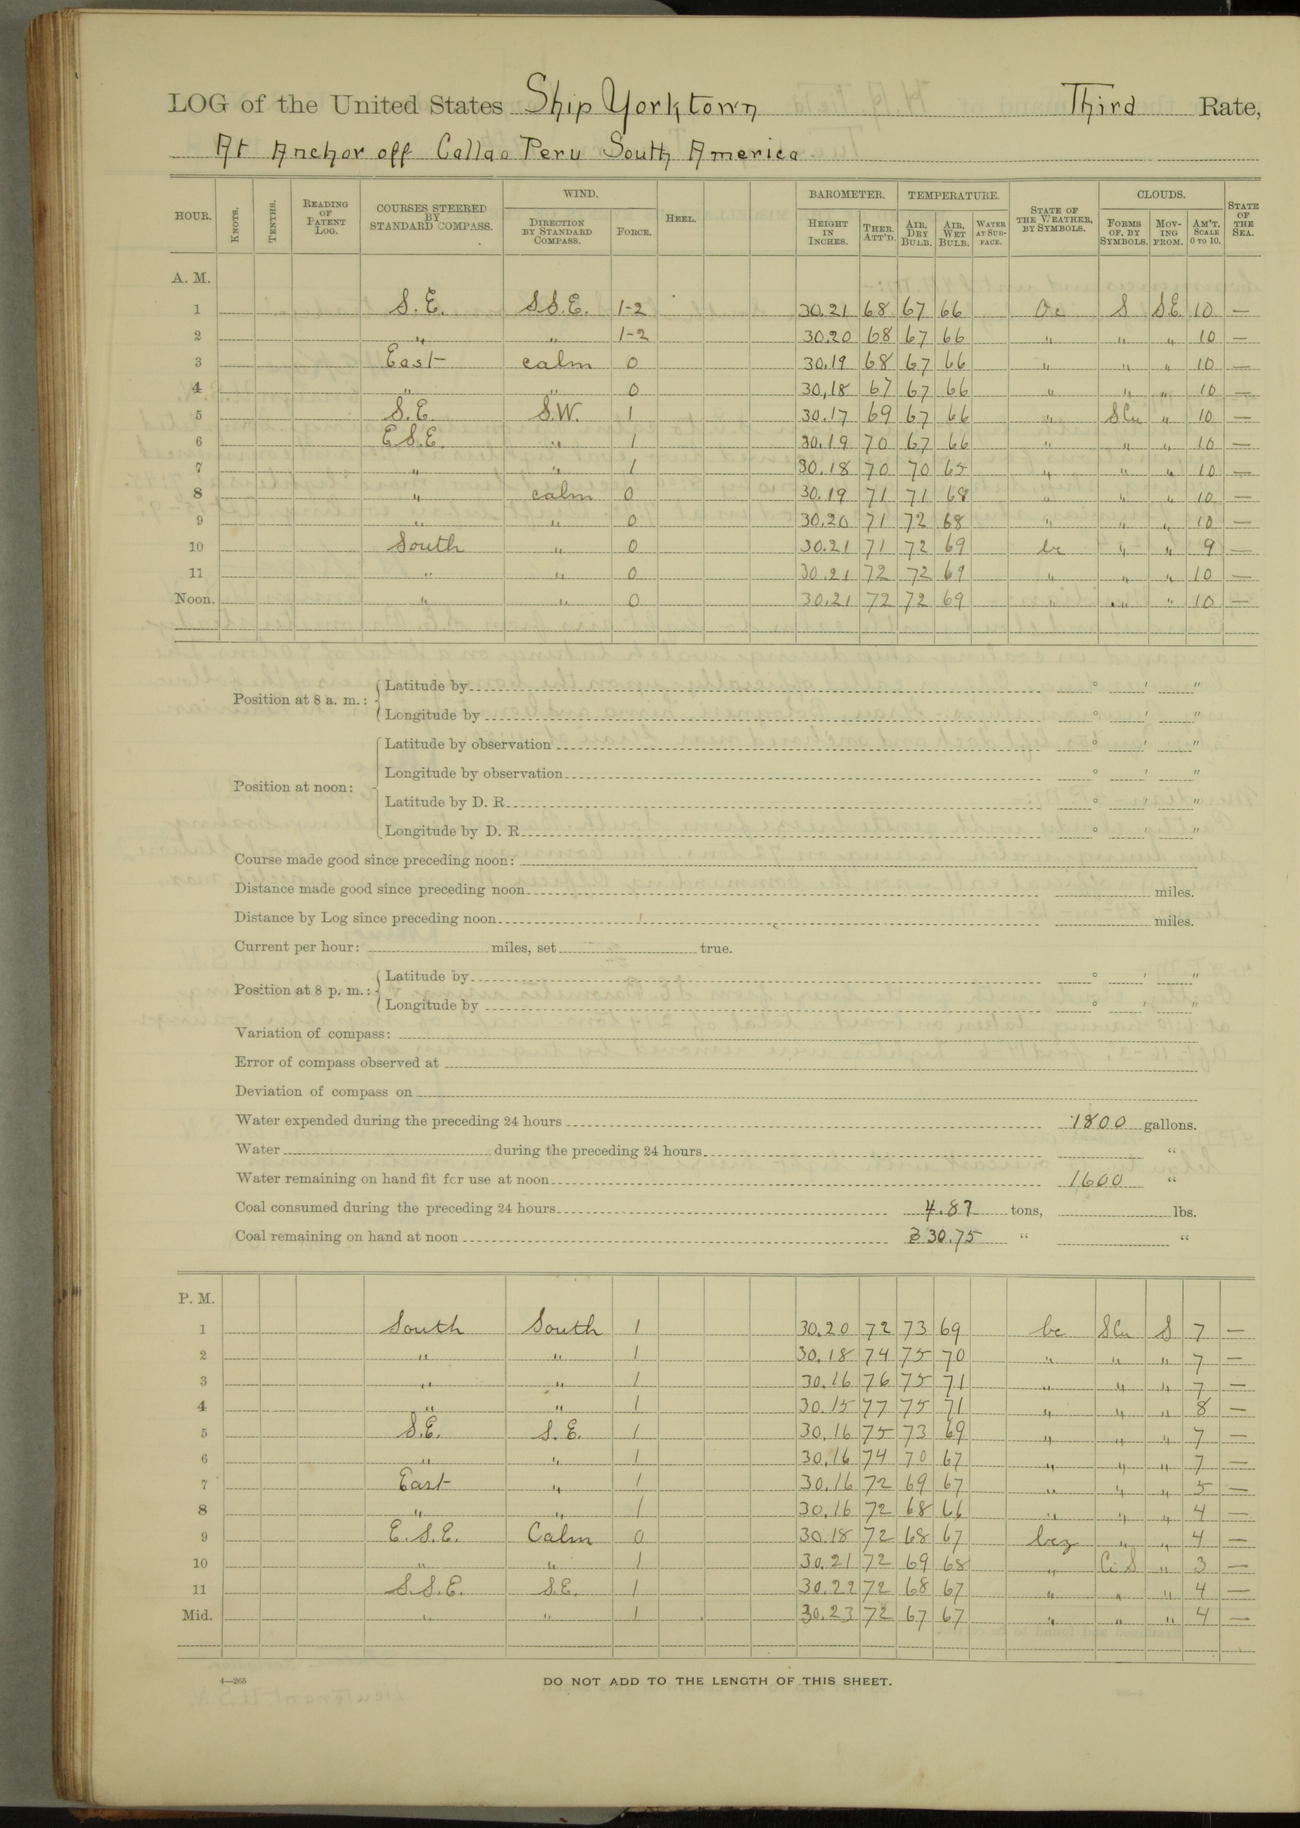 LOG of the United States Ship Yorktown Third Rate,
At Anchor off Callao Peru South America
HOUR. KNOTS. TENTHS. READING OF PATENT LOG. COURSES STEERED BY STANDARD COMPASS. WIND. DIRECTION BY STANDARD COMPASS. FORCE. HEEL. BAROMETER. HEIGHT IN INCHES. THER. ATT'D. TEMPERATURE. AIR, DRY BULB. AIR, WET BULB. WATER AT SURFACE. STATE OF THE WEATHER, BY SYMBOLS. CLOUDS. FORMS OF, BY SYMBOLS. MOVING FROM. AM'T, SCALE 0 TO 10. STATE OF THE SEA.
A. M.
1 S.E. SS.E. 1-2 30.21 68 67 66 Oc S S.E. 10 —
2 " " 1-2 30.20 68 67 66 " " " 10 —
3 East calm 0 30.19 68 67 66 " " " 10 —
4 " " 0 30.18 67 67 66 " " " 10 —
5 S.E. S.W. 1 30.17 69 67 66 " SCu " 10 —
6 E S.E. " 1 30.19 70 67 66 " " " 10 —
7 " " 1 30.18 70 70 65 " " " 10 —
8 " calm 0 30.19 71 71 68 " " " 10 —
9 " " 0 30.20 71 72 68 " " " 10 —
10 South " 0 30.21 71 72 69 bc " " 9 —
11 " " 0 30.21 72 72 69 " " " 10 —
Noon. " " 0 30.21 72 72 69 " " " 10 —
Position at 8 a. m.: Latitude by ° ' "
Longitude by ° ' "
Position at noon: Latitude by observation ° ' "
Longitude by observation ° ' "
Latitude by D. R. ° ' "
Longitude by D. R. ° ' "
Course made good since preceding noon:
Distance made good since preceding noon miles.
Distance by Log since preceding noon miles.
Current per hour: miles, set true.
Position at 8 p. m.: Latitude by ° ' "
Longitude by ° ' "
Variation of compass:
Error of compass observed at
Deviation of compass on
Water expended during the preceding 24 hours 1800 gallons.
Water during the preceding 24 hours "
Water remaining on hand fit for use at noon 1600 "
Coal consumed during the preceding 24 hours 4.87 tons, lbs.
Coal remaining on hand at noon 330.75 " "
P. M.
1 South South 1 30.20 72 73 69 bc SCu S 7 —
2 " " 1 30.18 74 75 70 " " " 7 —
3 " " 1 30.16 76 75 71 " " " 7 —
4 " " 1 30.15 77 75 71 " " " 8 —
5 S.E. S.E. 1 30.16 75 73 69 " " " 7 —
6 " " 1 30.16 74 70 67 " " " 7 —
7 East " 1 30.16 72 69 67 " " " 5 —
8 " " 1 30.16 72 68 66 " " " 4 —
9 E.S.E. Calm 0 30.18 72 68 67 bcz " " 4 —
10 " " 1 30.21 72 69 68 " Ci S " 3 —
11 S.S.E. S.E. 1 30.22 72 68 67 " " " 4 —
Mid. " " 1 30.23 72 67 67 " " " 4 —
4—265 DO NOT ADD TO THE LENGTH OF THIS SHEET.